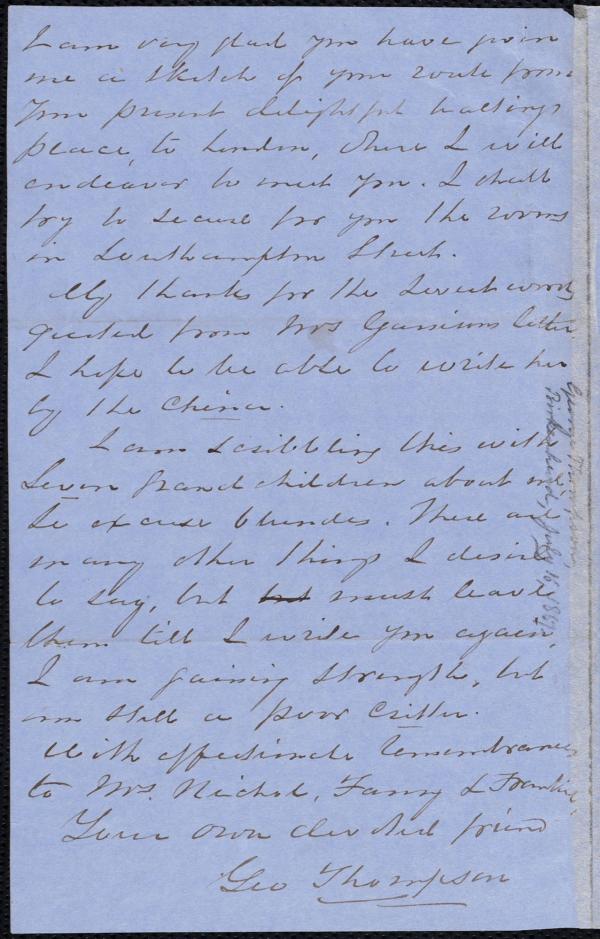 I am very glad you have given
me a sketch of your route from
your present delightful halting
place, to London, where I will
endeavor to meet you. I shall
try to secure for you the rooms
in Southampton Street.
My thanks for the sweet words
quoted from Mrs Garrisons letter
I hope to be able to write her
by the China.
I am scribbling this with
seven grandchildren about me,
so excuse blunders. There are
many other things I desire
to say, but must leave
them till I write you again.
I am gaining strength, but
am still a poor critter.
With affectionate remembrances
to Mrs. Nichol, Fanny & Frankie,
Your own devoted friend
Geo Thompson
George Thompson,
July 16, 1867